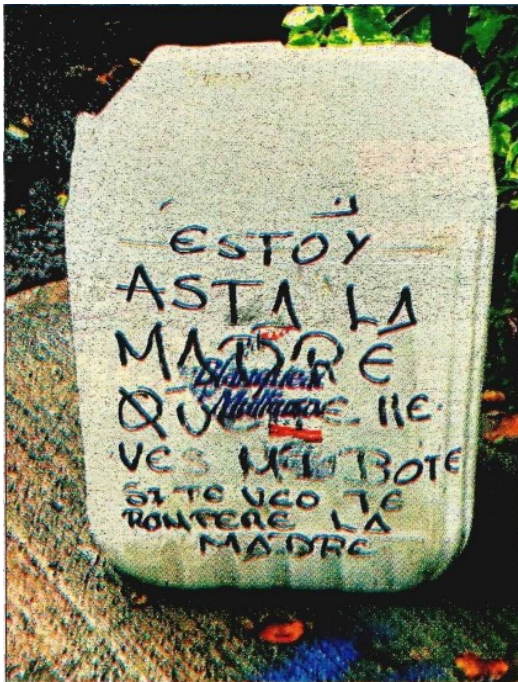 ESTOY
ASTA LA
MADRE
QUE TE lle
VES MI BOTE
SI TE VEO TE
ROMPERE LA
MADRE